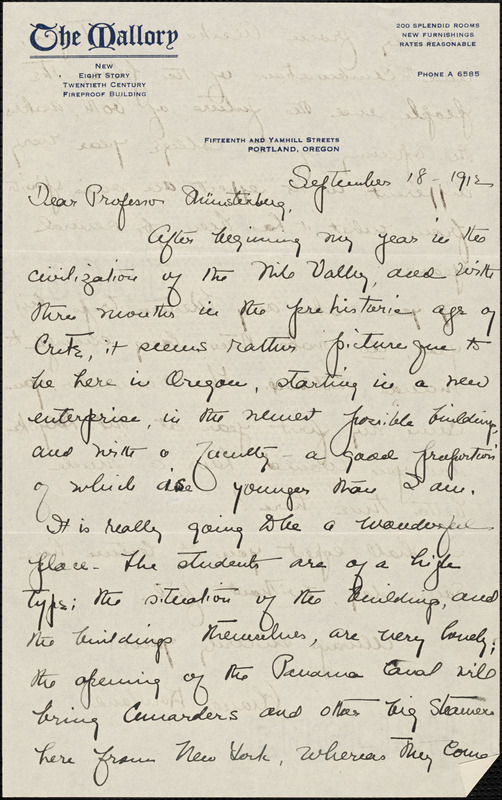 The Mallory
New
Eight Story
Twentieth Century
Fireproof Building
200 Splendid Rooms
New Furnishings
Rates Reasonable
Phone A 6585
Fifteenth and Yamhill Streets
Portland, Oregon
September 18 - 1912
Dear Professor Münsterberg,
After beginning my year in the
civilization of the Nile Valley, and with
three months in the prehistoric age of
Crete, it seems rather picturesque to
be here in Oregon, starting in a new
enterprise, in the newest possible building,
and with a faculty - a good proportion
of which is younger than I am.
It is really going to be a wonderful
place - The students are of a high
type; the situation of the building, and
the buildings themselves, are very lovely;
the opening of the Panama Canal will
bring Cunarders and other big Steamers
here from New York, whereas they come